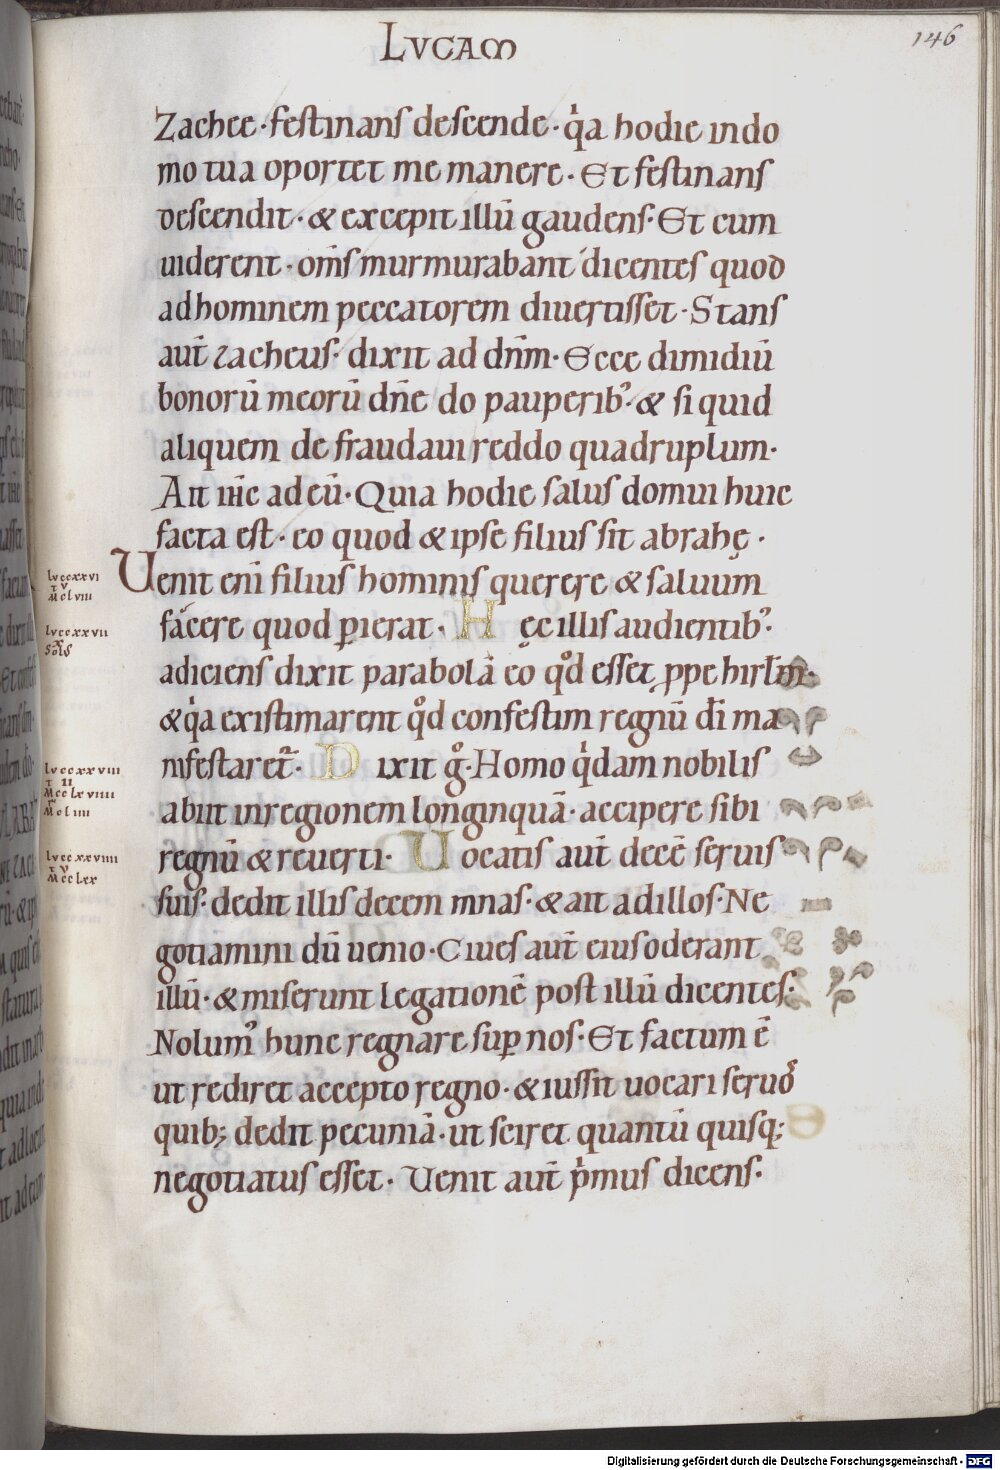 LVCAM
146
Zachee · festinans descende · q̍a hodie in do
mo tua oportet me manere · Et festinans
descendit · & excepit illū gaudens · Et cum
uiderent · om̄s murmurabant dicentes quod
ad hominem peccatorem diuertisset · Stans
aut̄ zacheus · dixit ad dn̄m · Ecce dimidiū
bonorū meorū dn̄e do pauperib᾽ · & si quid
aliquem de fraudaui reddo quadruplum ·
Ait ih̄c ad eū · Quia hodie salus domui huic
facta est · eo quod & ipse filius sit abrahę ·
Uenit eni̅ filius hominis querere & saluum
facere quod ꝑierat · Hęc illis audientib᾽ ·
adiciens dixit parabolā eo qͦd esset ꝓpe hirl̄m ·
& q̍a existimarent qͦd confestim regnū dī ma
nifestaret᷑ · Dixit gͦ · Homo q̍dam nobilis
abiit in regionem longinquā · accipere sibi
regnū & reuerti · Uocatis aut̄ decē seruis
suis · dedit illis decem mnas · & ait ad illos · Ne
gotiamini dū uenio · Ciues aut̄ eius oderant
illū · & miserunt legationē post illū dicentes ·
Nolum᾽ hunc regnare sup̄ nos · Et factum ē
ut rediret accepto regno · & iussit uocari seruos
quib; dedit pecuniā · ut sciret quantū quisq;
negotiatus esset · Uenit aut̄ p̍mus dicens ·
lv ccxxvi
t v
M clviii
lv ccxxvii
x
solꝰ
lv ccxxviii
t ii
M cclxviiii
Mͬ cliiii
lv ccxxviiii
t v
M cclxx
E
Digitalisierung gefördert durch die Deutsche Forschungsgemeinschaft - DFG